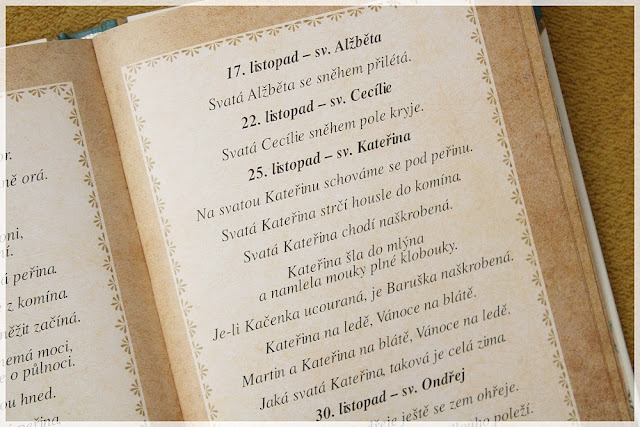 or.
ně orá.
oni,
ní.
á peřina.
z komína.
něžit začíná.
nemá moci,
e o půlnoci.
ou hned.
peřina
17. listopad – sv. Alžběta
Svatá Alžběta se sněhem přilétá.
22. listopad – sv. Cecílie
Svatá Cecílie sněhem pole kryje.
25. listopad – sv. Kateřina
Na svatou Kateřinu schováme se pod peřinu.
Svatá Kateřina strčí housle do komína.
Svatá Kateřina chodí naškrobená.
Kateřina šla do mlýna
a namlela mouky plné klobouky.
Je-li Kačenka ucouraná, je Baruška naškrobená.
Kateřina na ledě, Vánoce na blátě.
Martin a Kateřina na blátě, Vánoce na ledě.
Jaká svatá Kateřina, taková je celá zima.
30. listopad – sv. Ondřej
ještě se zem ohřeje.
poleží.